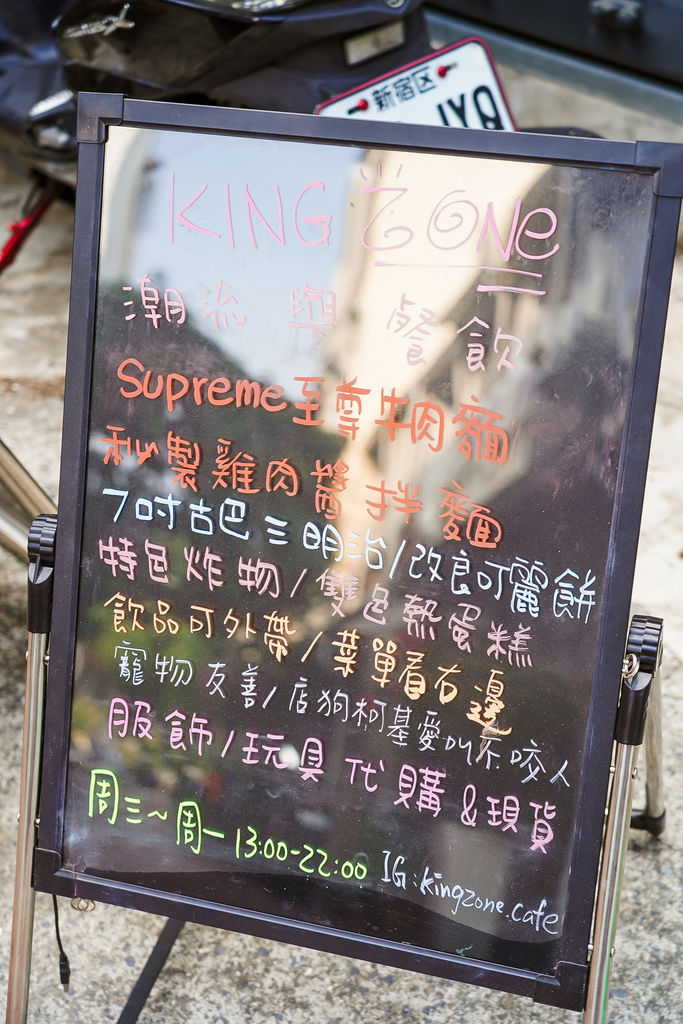 新宿区
JYQ
KING ZONE
潮流 與 餐飲
Supreme至尊牛肉麵
秘製雞肉醬拌麵
7吋古巴三明治/改良可麗餅
特色炸物/雙色熱蛋糕
飲品可外帶/菜單看右邊
寵物友善/店狗柯基愛叫不咬人
服飾/玩具 代購&現貨
周三~周一 13:00-22:00 IG:kingzone.cafe